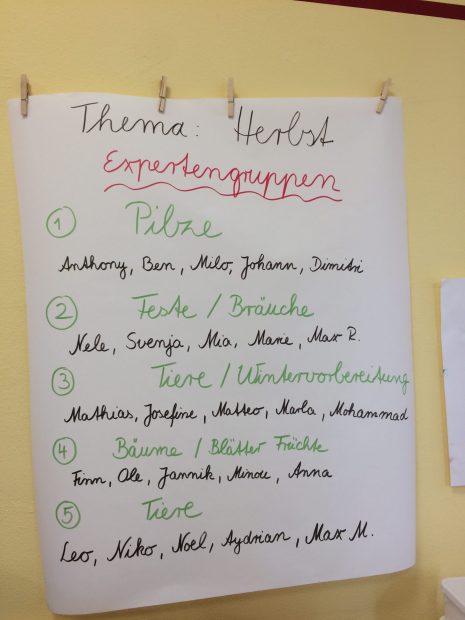 Thema: Herbst
Expertengruppen
1 Pilze
Anthony, Ben, Milo, Johann, Dimitri
2 Feste / Bräuche
Nele, Svenja, Mia, Marie, Max R.
3 Tiere / Wintervorbereitung
Mathias, Josefine, Matteo, Marla, Mohammad
4 Bäume / Blätter Früchte
Finn, Ole, Jannik, Minou, Anna
5 Tiere
Leo, Niko, Noel, Aydrian, Max M.